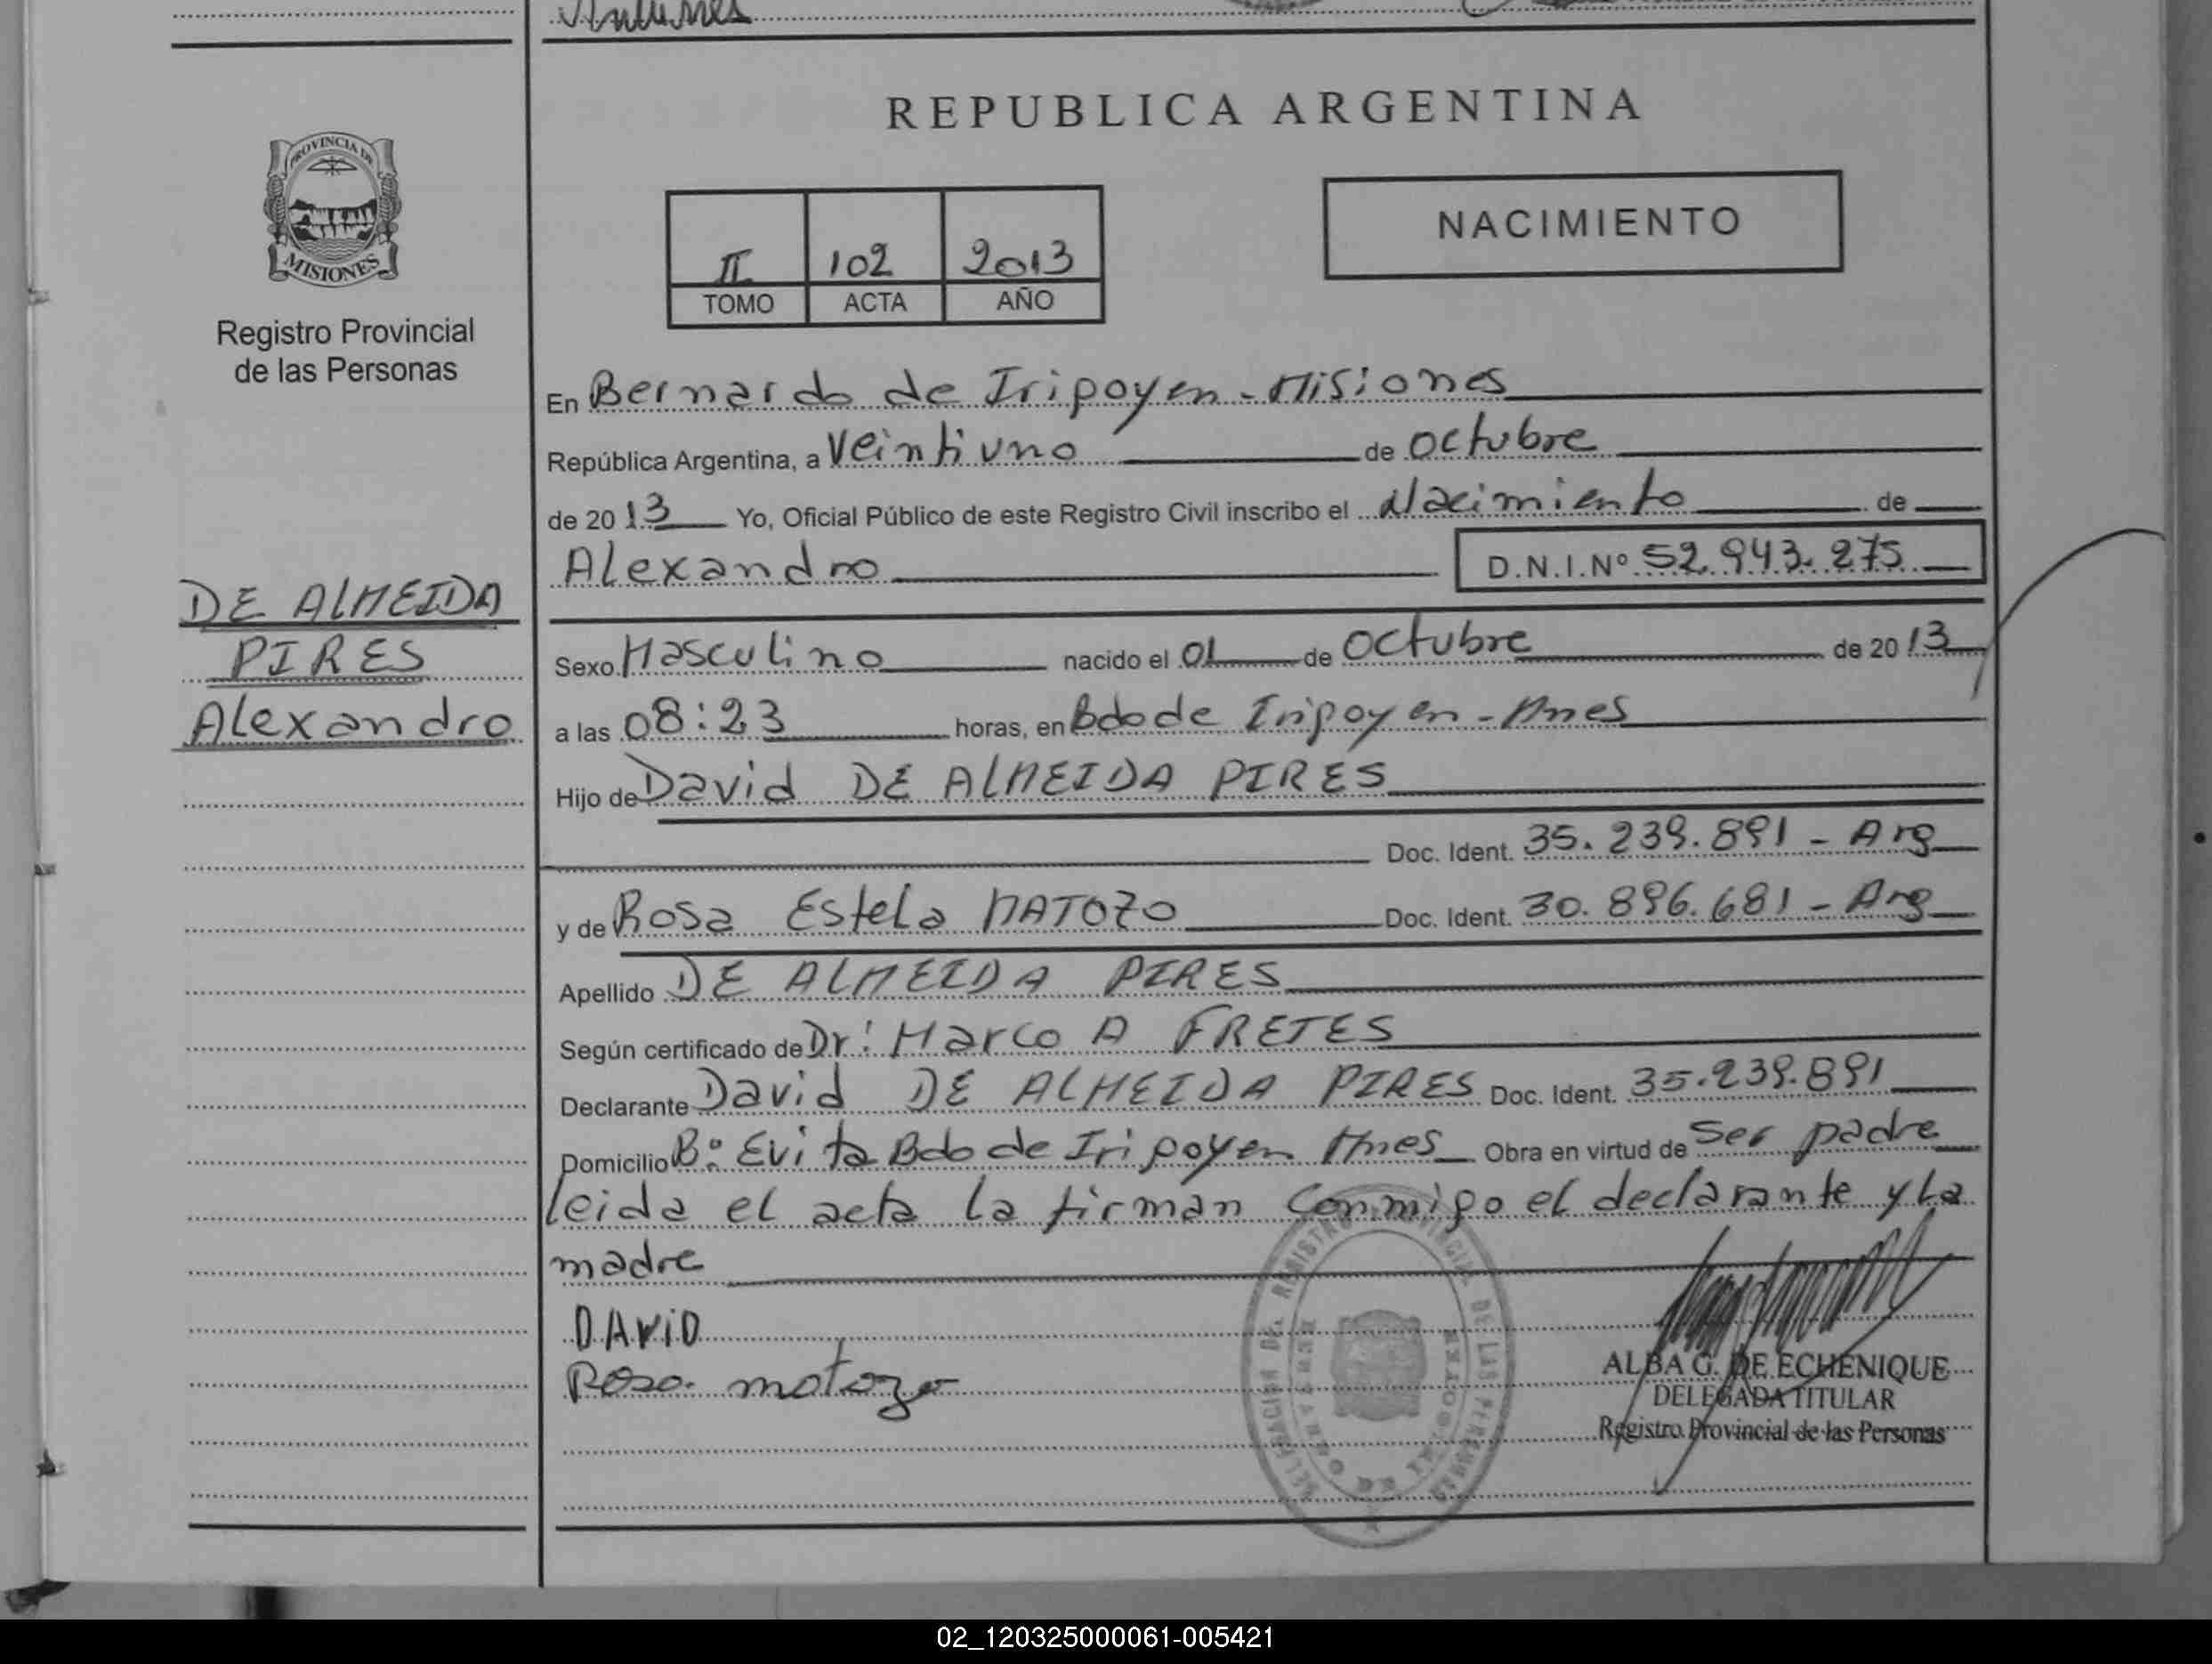 Antunes
REPUBLICA ARGENTINA
PROVINCIA DE
MISIONES
Registro Provincial
de las Personas
II 102 2013
TOMO ACTA AÑO
NACIMIENTO
En Bernardo de Iripoyen - Misiones
República Argentina, a Veintiuno de octubre
de 2013 Yo, Oficial Público de este Registro Civil inscribo el Nacimiento de
Alexandro D.N.I.Nº 52.943.275
DE ALMEIDA
PIRES
Alexandro
Sexo Masculino nacido el 01 de Octubre de 2013
a las 08:23 horas, en Bdo de Iripoyen - Mnes
Hijo de David DE ALMEIDA PIRES
Doc. Ident. 35.239.891 - Arg
y de Rosa Estela MATOZO Doc. Ident. 30.896.681 - Arg
Apellido DE ALMEIDA PIRES
Según certificado de Dr: Marco A FRETES
Declarante David DE ALMEIDA PIRES Doc. Ident. 35.239.891
Domicilio Bº: Evita Bdo de Iripoyen Mnes Obra en virtud de Ser padre
leida el acta la firman Conmigo el declarante y La
madre
DAVID
Rosa matozo
ALBA G. DE ECHENIQUE
DELEGADA TITULAR
Registro Provincial de las Personas
02_120325000061-005421